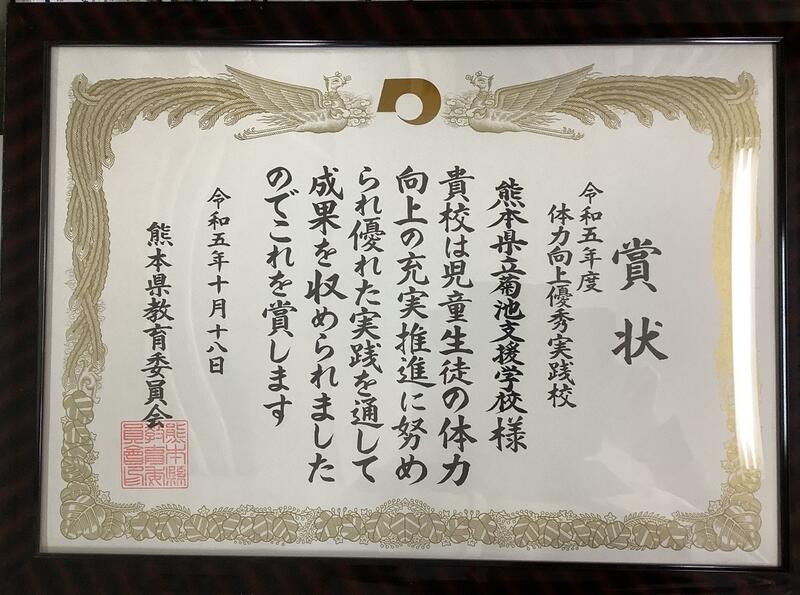 賞状
令和五年度
体力向上優秀実践校
熊本県立菊池支援学校様
貴校は児童生徒の体力
向上の充実推進に努め
られ優れた実践を通して
成果を収められました
のでこれを賞します
令和五年十月十八日
熊本県教育委員会
熊本縣
教育委
員會印